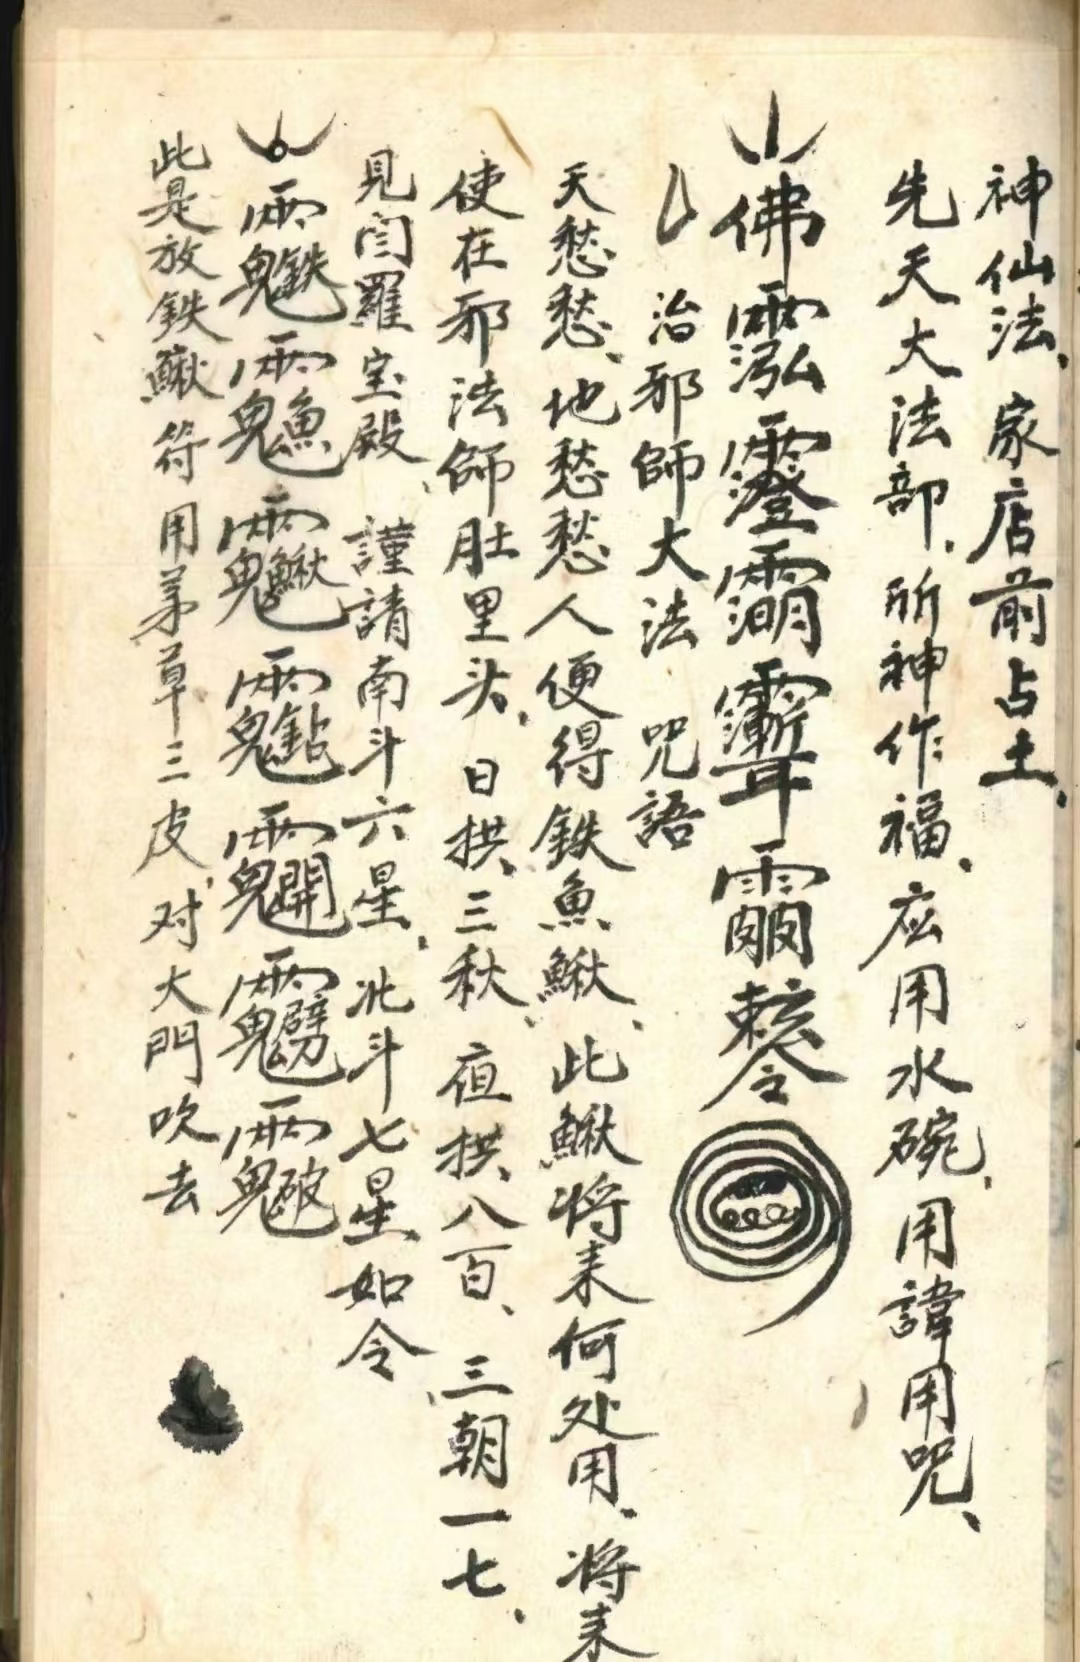 神仙法、家店前占土、
先天大法部、所神作福、应用水碗、用諱用咒、
佛
治邪師大法 咒語
天愁愁、地愁愁、人便得鉄魚鰍、此鰍将来何处用、将来
使在邪法師肚里头、日拱三秋、夜拱八百、三朝一七、
見闫羅宝殿、謹請南斗六星、北斗七星如令、
此是放鉄鰍符用茅草三皮、对大門吹去